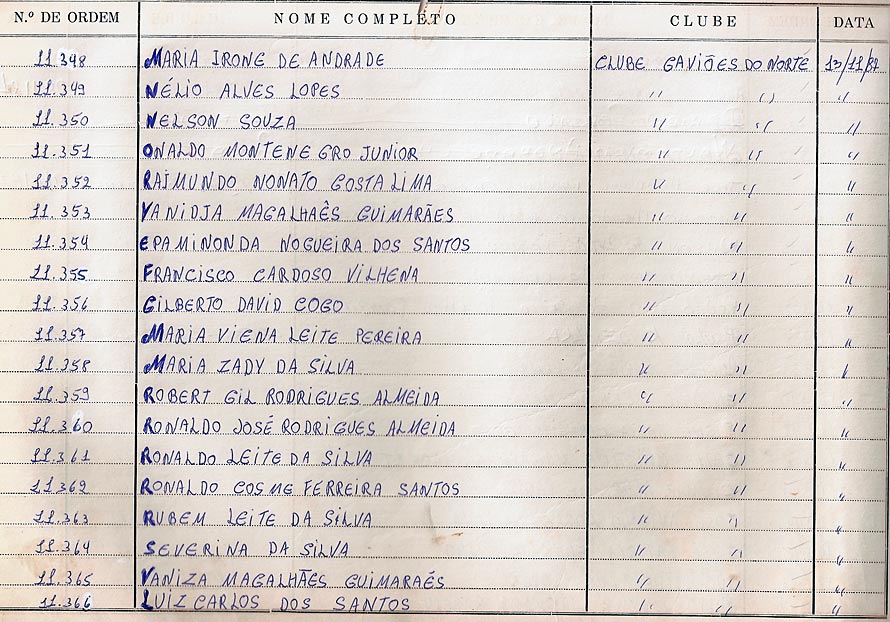 N.º DE ORDEM NOME COMPLETO CLUBE DATA
11.348 MARIA IRONE DE ANDRADE CLUBE GAVIÕES DO NORTE 13/11/87
11.349 NÉLIO ALVES LOPES " " "
11.350 NELSON SOUZA " " "
11.351 ONALDO MONTENEGRO JUNIOR " " "
11.352 RAIMUNDO NONATO COSTA LIMA " " "
11.353 VANIDJA MAGALHAÊS GUIMARÃES " " "
11.354 EPAMINONDA NOGUEIRA DOS SANTOS " " "
11.355 FRANCISCO CARDOSO VILHENA " " "
11.356 GILBERTO DAVID COGO " " "
11.357 MARIA VIENA LEITE PEREIRA " " "
11.358 MARIA ZADY DA SILVA " " "
11.359 ROBERT GIL RODRIGUES ALMEIDA " " "
11.360 RONALDO JOSÉ RODRIGUES ALMEIDA " " "
11.361 RONALDO LEITE DA SILVA " " "
11.362 RONALDO COSME FERREIRA SANTOS " " "
11.363 RUBEM LEITE DA SILVA " " "
11.364 SEVERINA DA SILVA " " "
11.365 VANIZA MAGALHÃES GUIMARAÉS " " "
11.366 LUIZ CARLOS DOS SANTOS " " "